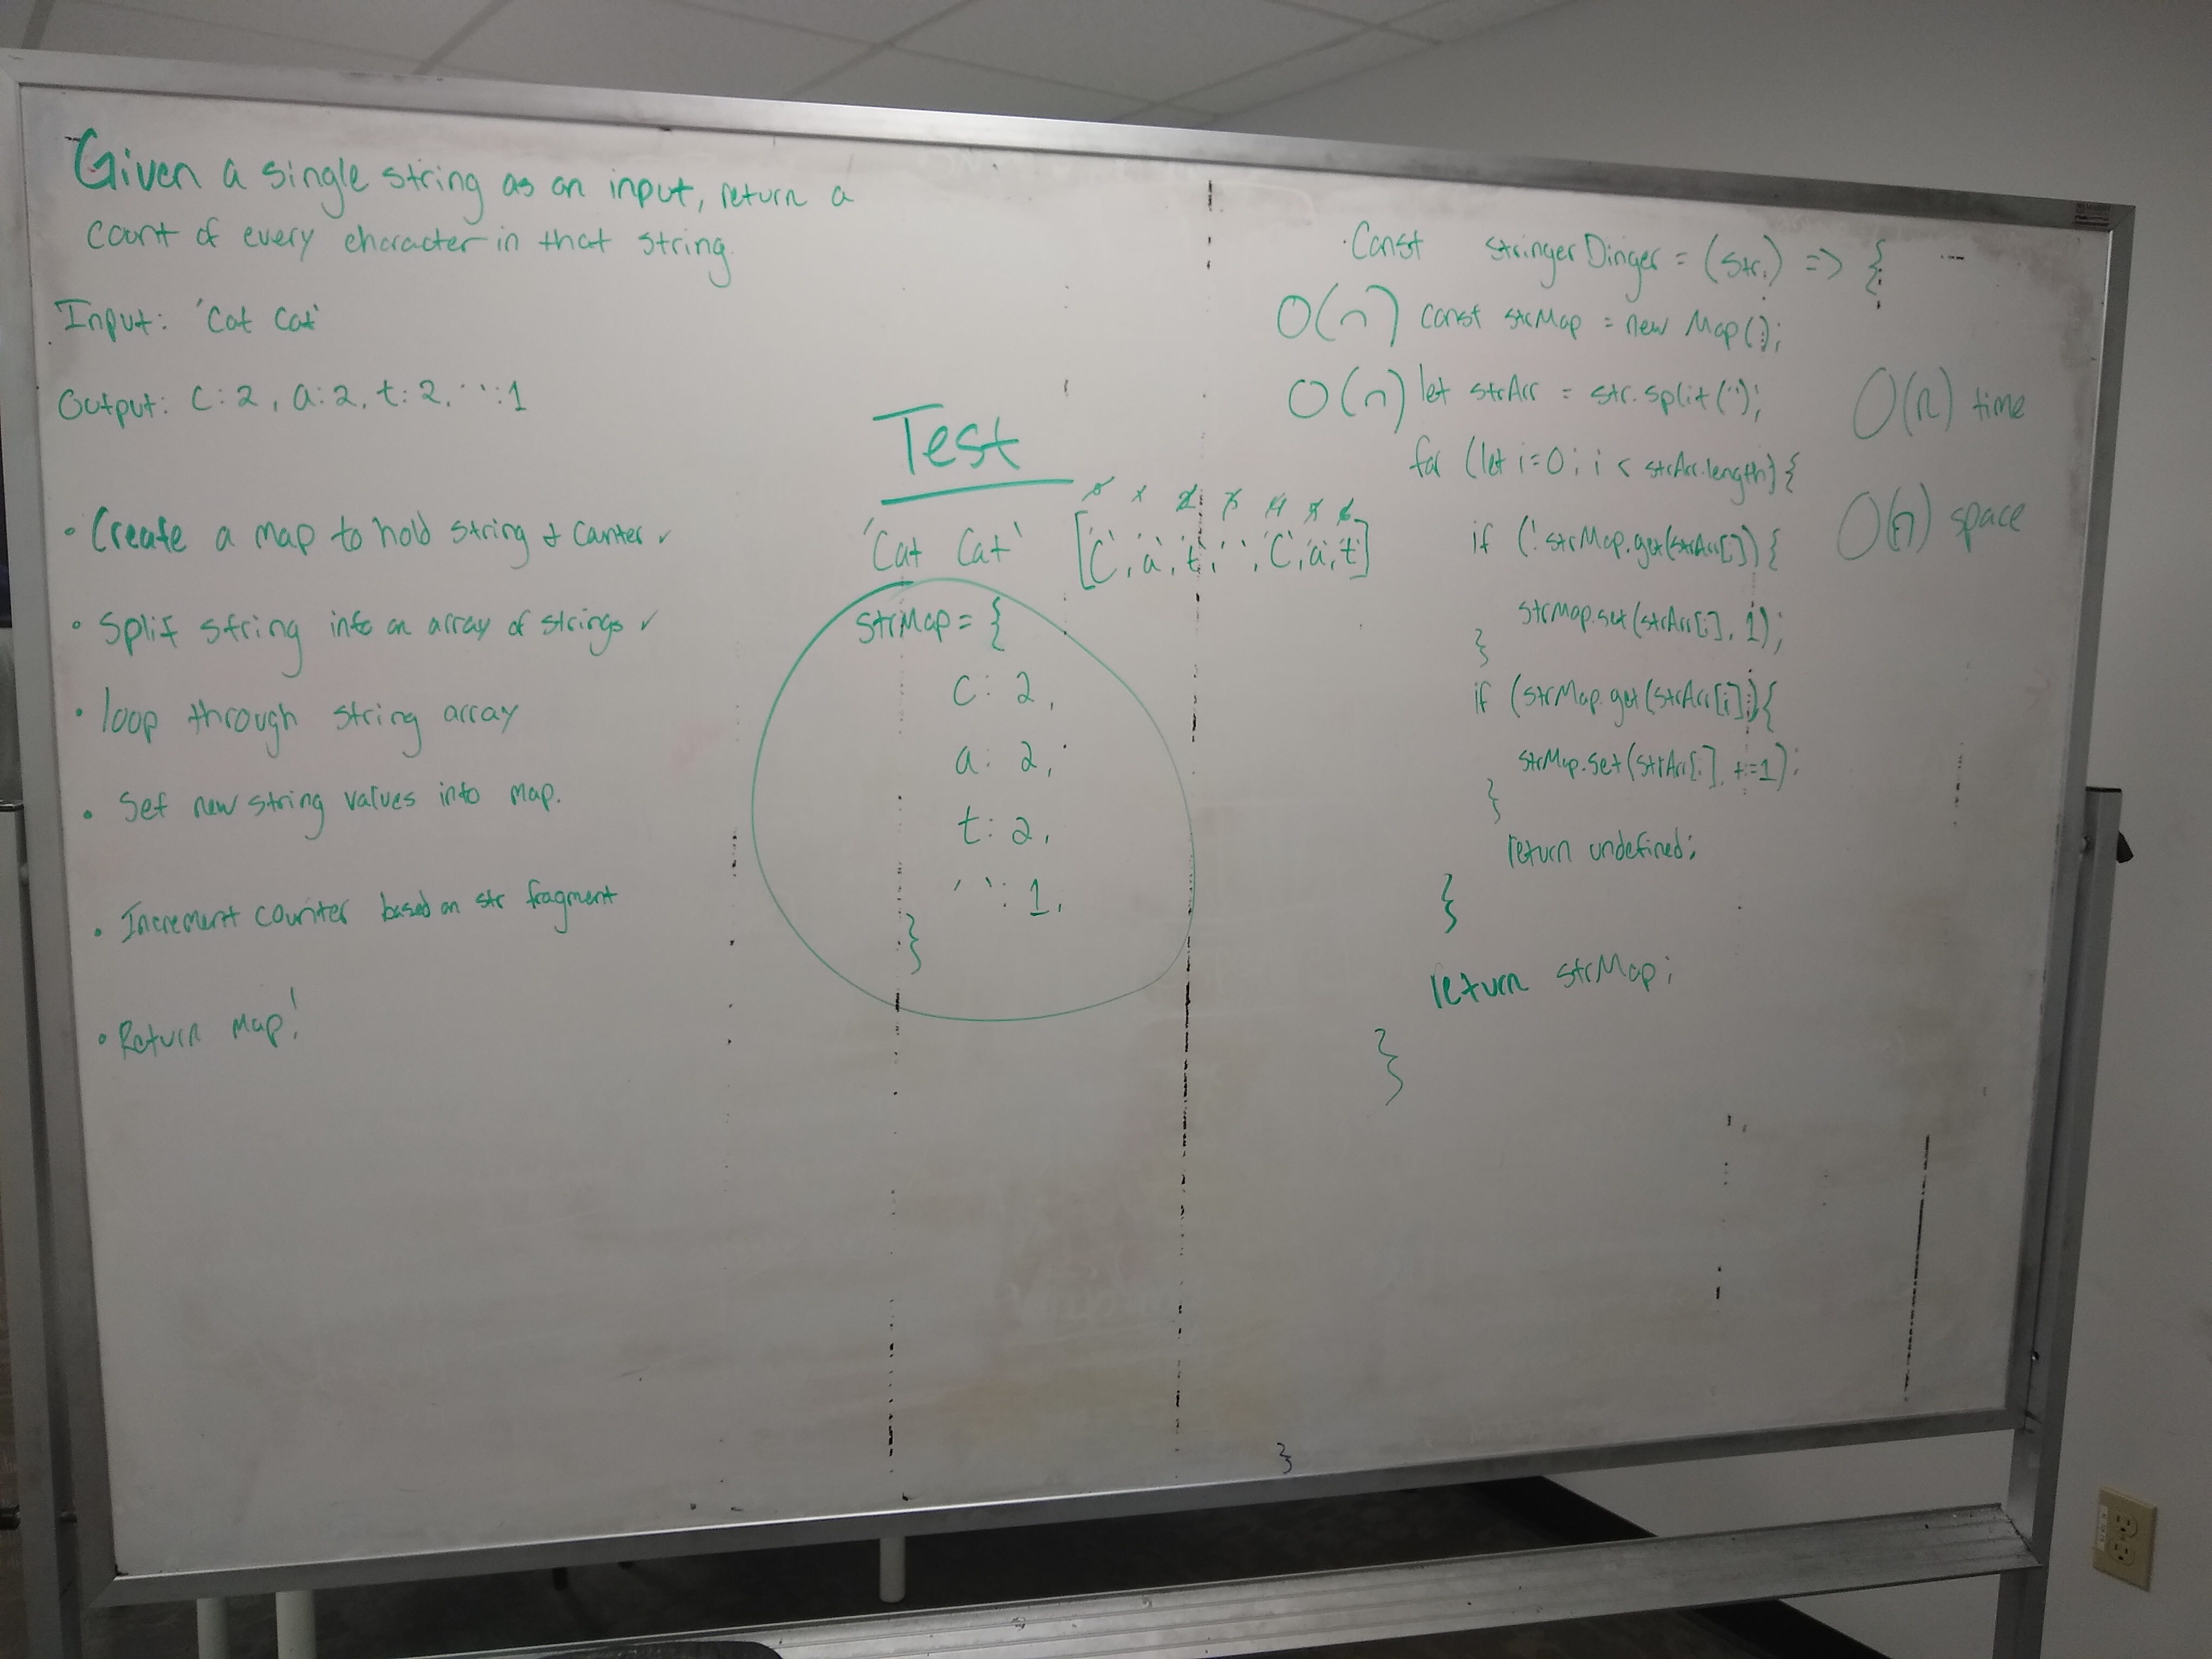 Given a single string as an input, return a
count of every character in that string.
Input: 'Cat Cat'
Output: c:2, a:2, t:2, ' ':1
• Create a map to hold string & counter ✓
• Split string into an array of strings ✓
• loop through string array
• Set new string values into map.
• Increment counter based on str fragment
• Return map!
Test
0 1 2 3 4 5 6
'Cat Cat' ['C','a','t',' ','C','a','t']
strMap = {
c: 2,
a: 2,
t: 2,
' ': 1,
}
Const stringerDinger = (str) => {
O(n) const strMap = new Map();
O(n) let strArr = str.split('');
for (let i=0; i < strArr.length) {
if (!strMap.get(strArr[i])) {
strMap.set(strArr[i], 1);
}
if (strMap.get(strArr[i]) {
strMap.set(strArr[i], +=1);
}
return undefined;
}
return strMap;
}
O(n) time
O(n) space
}